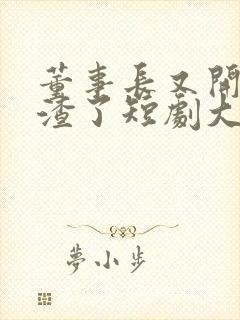 董事長又開
渣了短劇大
夢小步